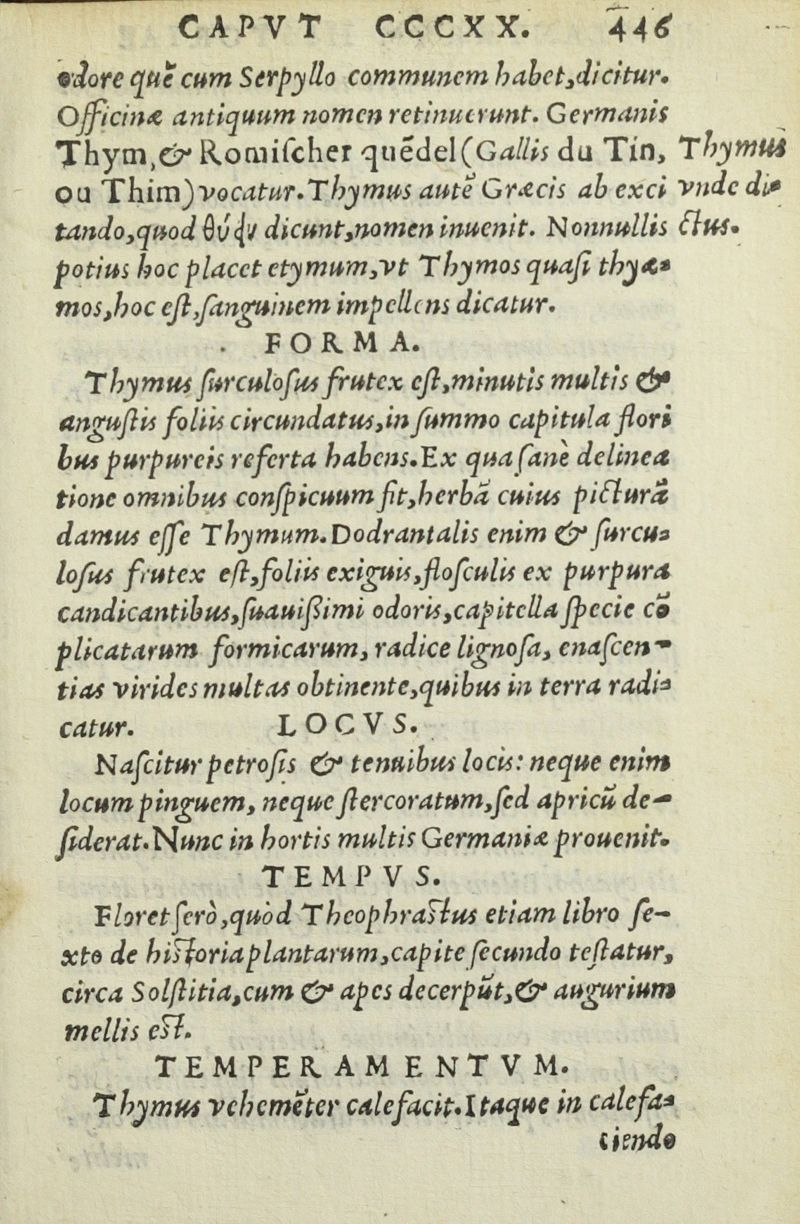 CAPVT CCCXX. 446
odore quē cum Serpyllo communem habet,dicitur.
Officinæ antiquum nomen retinuerunt. Germanis
Thym,& Romiſcher quēdel(Gallis du Tin, Thymus
ou Thim)vocatur.Thymus autē Græcis ab exci vnde di-
tando,quod θύψ dicunt,nomen inuenit. Nonnullis ctus.
potius hoc placet etymum,vt Thymos quaſi thyæ-
mos,hoc eſt,ſanguinem impellens dicatur.
FORMA.
Thymus ſurculoſus frutex eſt,minutis multis &
anguſtis foliis circundatus,in ſummo capitula flori
bus purpureis referta habens.Ex qua ſanè delinea
tione omnibus conſpicuum fit,herbā cuius picturā
damus eſſe Thymum.Dodrantalis enim & ſurcu-
loſus frutex eſt,foliis exiguis,floſculis ex purpura
candicantibus,ſuauißimi odoris,capitella ſpecie cō
plicatarum formicarum, radice lignoſa, enaſcen-
tias virides multas obtinente,quibus in terra radi-
catur. LOCVS.
Naſcitur petroſis & tenuibus locis: neque enim
locum pinguem, neque ſtercoratum,ſed apricū de-
ſiderat.Nunc in hortis multis Germaniæ prouenit.
TEMPVS.
Floret ſerò,quòd Theophraſtus etiam libro ſe-
xto de hiſtoria plantarum,capite ſecundo teſtatur,
circa Solſtitia,cum & apes decerpūt,& augurium
mellis eſt.
TEMPERAMENTVM.
Thymus vehemēter calefacit.Itaque in calefa-
ciendo